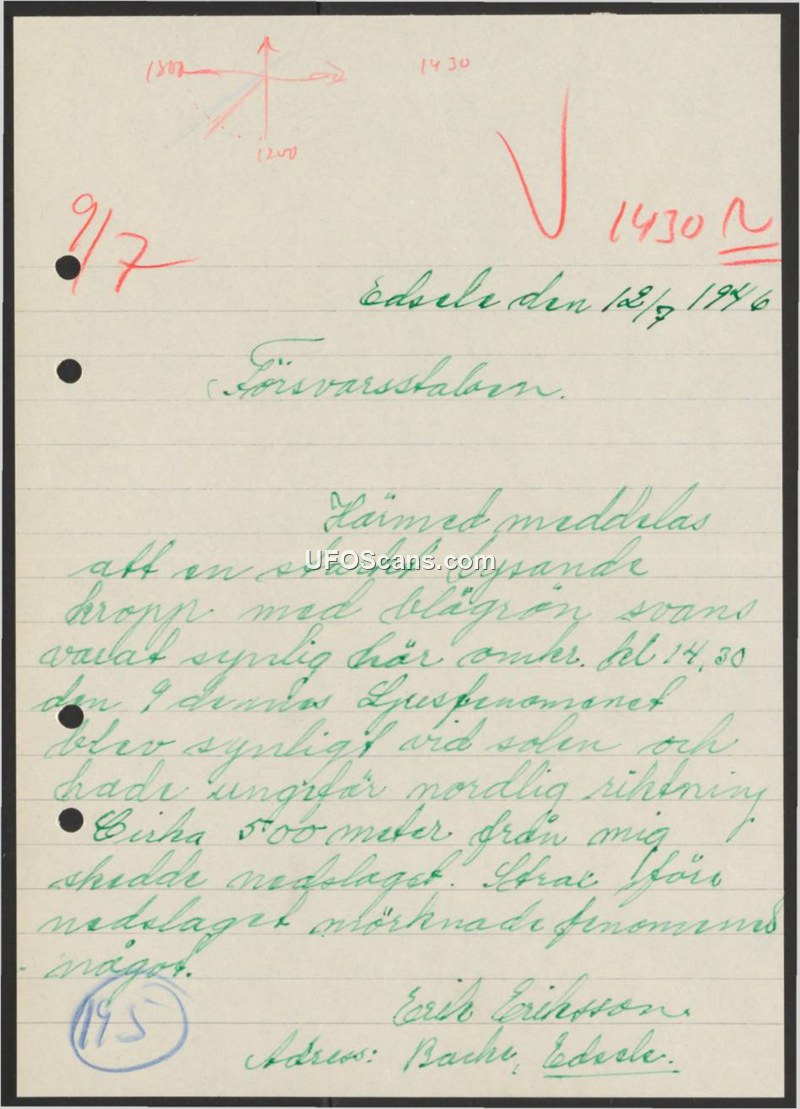 1800
1430
1200
9/7
1430 N
Edsele den 12/7 1946
Försvarsstaben.
Härmed meddelas
att en starkt lysande
UFOScans.com
kropp med blågrön svans
varat synlig här omkr. kl 14,30
den 9 dennes Ljusfenomenet
blev synligt vid solen och
hade ungefär nordlig riktning
Cirka 500 meter från mig
skedde nedslaget. Strax före
nedslaget mörknade fenomenet
något.
Erik Eriksson.
Adress: Backe, Edsele.
195